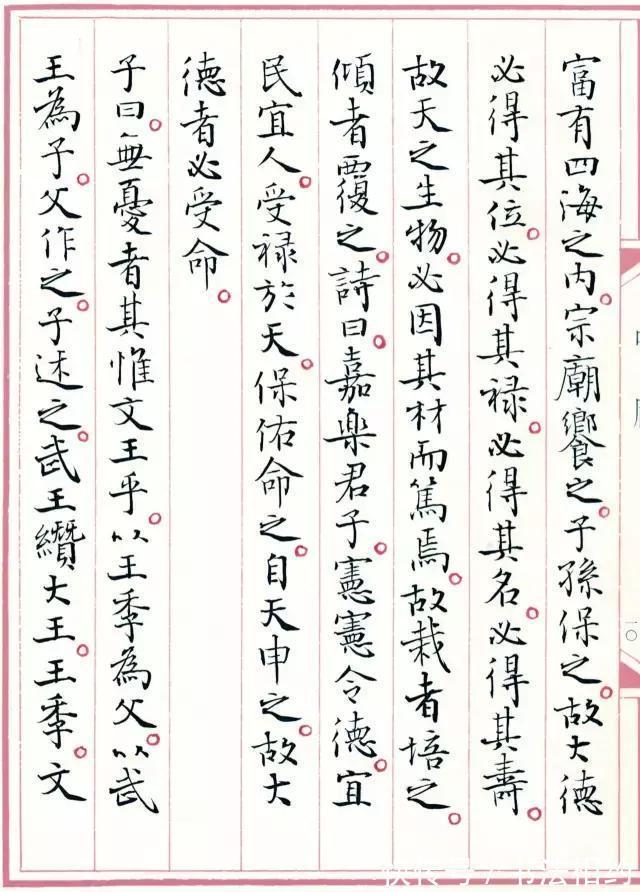 富有四海之内。宗廟饗之。子孫保之。故大德
必得其位。必得其禄。必得其名。必得其壽。
故天之生物。必因其材而篤焉。故栽者培之。
傾者覆之。詩曰。嘉樂君子。憲憲令德。宜
民宜人。受禄於天。保佑命之。自天申之。故大
德者必受命。
子曰。無憂者其惟文王乎。以王季為父。以武
王為子。父作之。子述之。武王纘大王。王季。文
一〇
快传号 / 书法相约